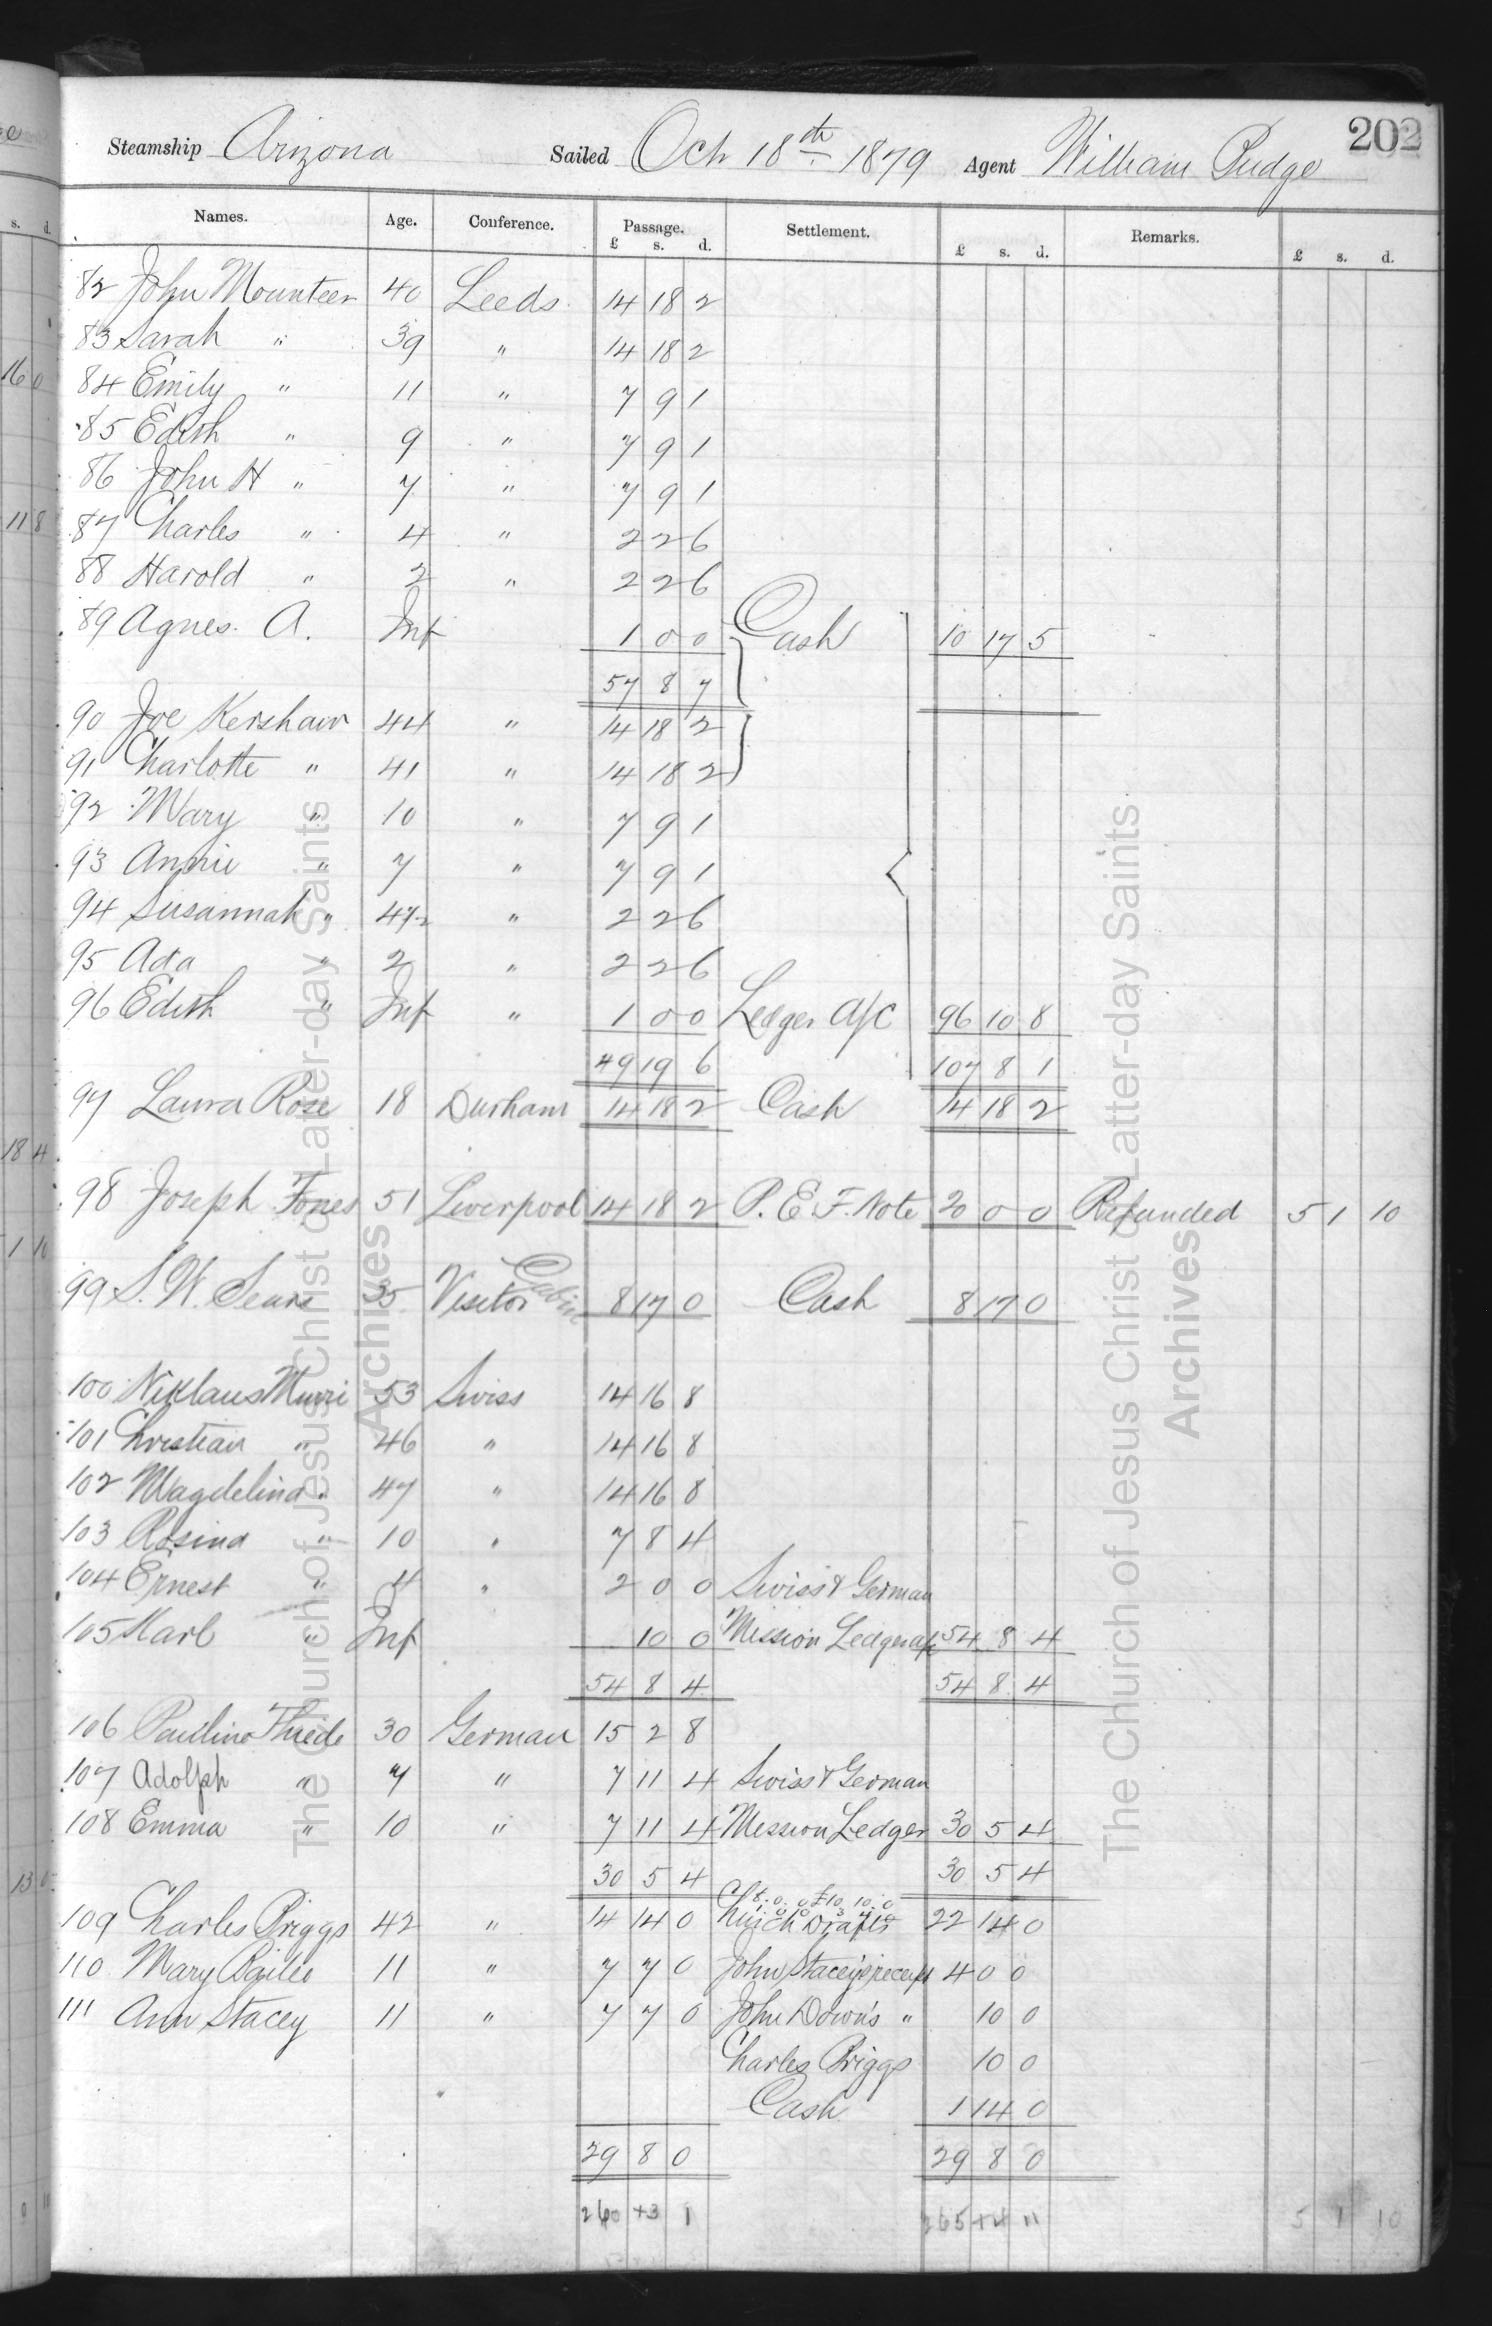 202
Steamship Arizona Sailed Oct 18th 1879 Agent William Budge
Names. Age. Conference. Passage. Settlement. Remarks.
£ s. d. £ s. d. £ s. d.
82 John Mounteer 40 Leeds 14 18 2
83 Sarah " 39 " 14 18 2
84 Emily " 11 " 7 9 1
85 Edith " 9 " 7 9 1
86 John H " 7 " 7 9 1
87 Charles " 4 " 2 2 6
88 Harold " 2 " 2 2 6
89 Agnes A. Inf 1 0 0 Cash 10 17 5
57 8 7
90 Joe Kershaw 44 " 14 18 2
91 Charlotte " 41 " 14 18 2
92 Mary " 10 " 7 9 1
93 Annie " 7 " 7 9 1
94 Susannah " 4 1/2 " 2 2 6
95 Ada " 2 " 2 2 6
96 Edith " Inf " 1 0 0 Ledger a/c 96 10 8
49 19 6 107 8 1
97 Laura Rose 18 Durham 14 18 2 Cash 14 18 2
98 Joseph Fones 51 Liverpool 14 18 2 P. E. F. Note 20 0 0 Refunded 5 1 10
99 S. W. Sears 35 Visitor Cabin 8 17 0 Cash 8 17 0
100 Niklaus Murri 53 Swiss 14 16 8
101 Christian " 46 " 14 16 8
102 Magdelina " 47 " 14 16 8
103 Rosina " 10 " 7 8 4
104 Ernest " 4 " 2 0 0 Swiss & German
105 Karl " Inf 10 0 Mission Ledger a/c 54 8 4
54 8 4 54 8 4
106 Pauline Thiede 30 German 15 2 8
107 Adolph " 7 " 7 11 4 Swiss & German
108 Emma " 10 " 7 11 4 Mission Ledger 30 5 4
30 5 4 30 5 4
109 Charles Briggs 42 " 14 14 0 Church Drafts 22 14 0
110 Mary Bailes 11 " 7 7 0 John Stacey's receipt 4 0 0
111 Ann Stacey 11 " 7 7 0 John Down's " 10 0
Charles Briggs 10 0
Cash 1 14 0
29 8 0 29 8 0
260 +3 1 265 +4 11 5 1 10
The Church of Jesus Christ of Latter-day Saints
Archives
The Church of Jesus Christ of Latter-day Saints
Archives